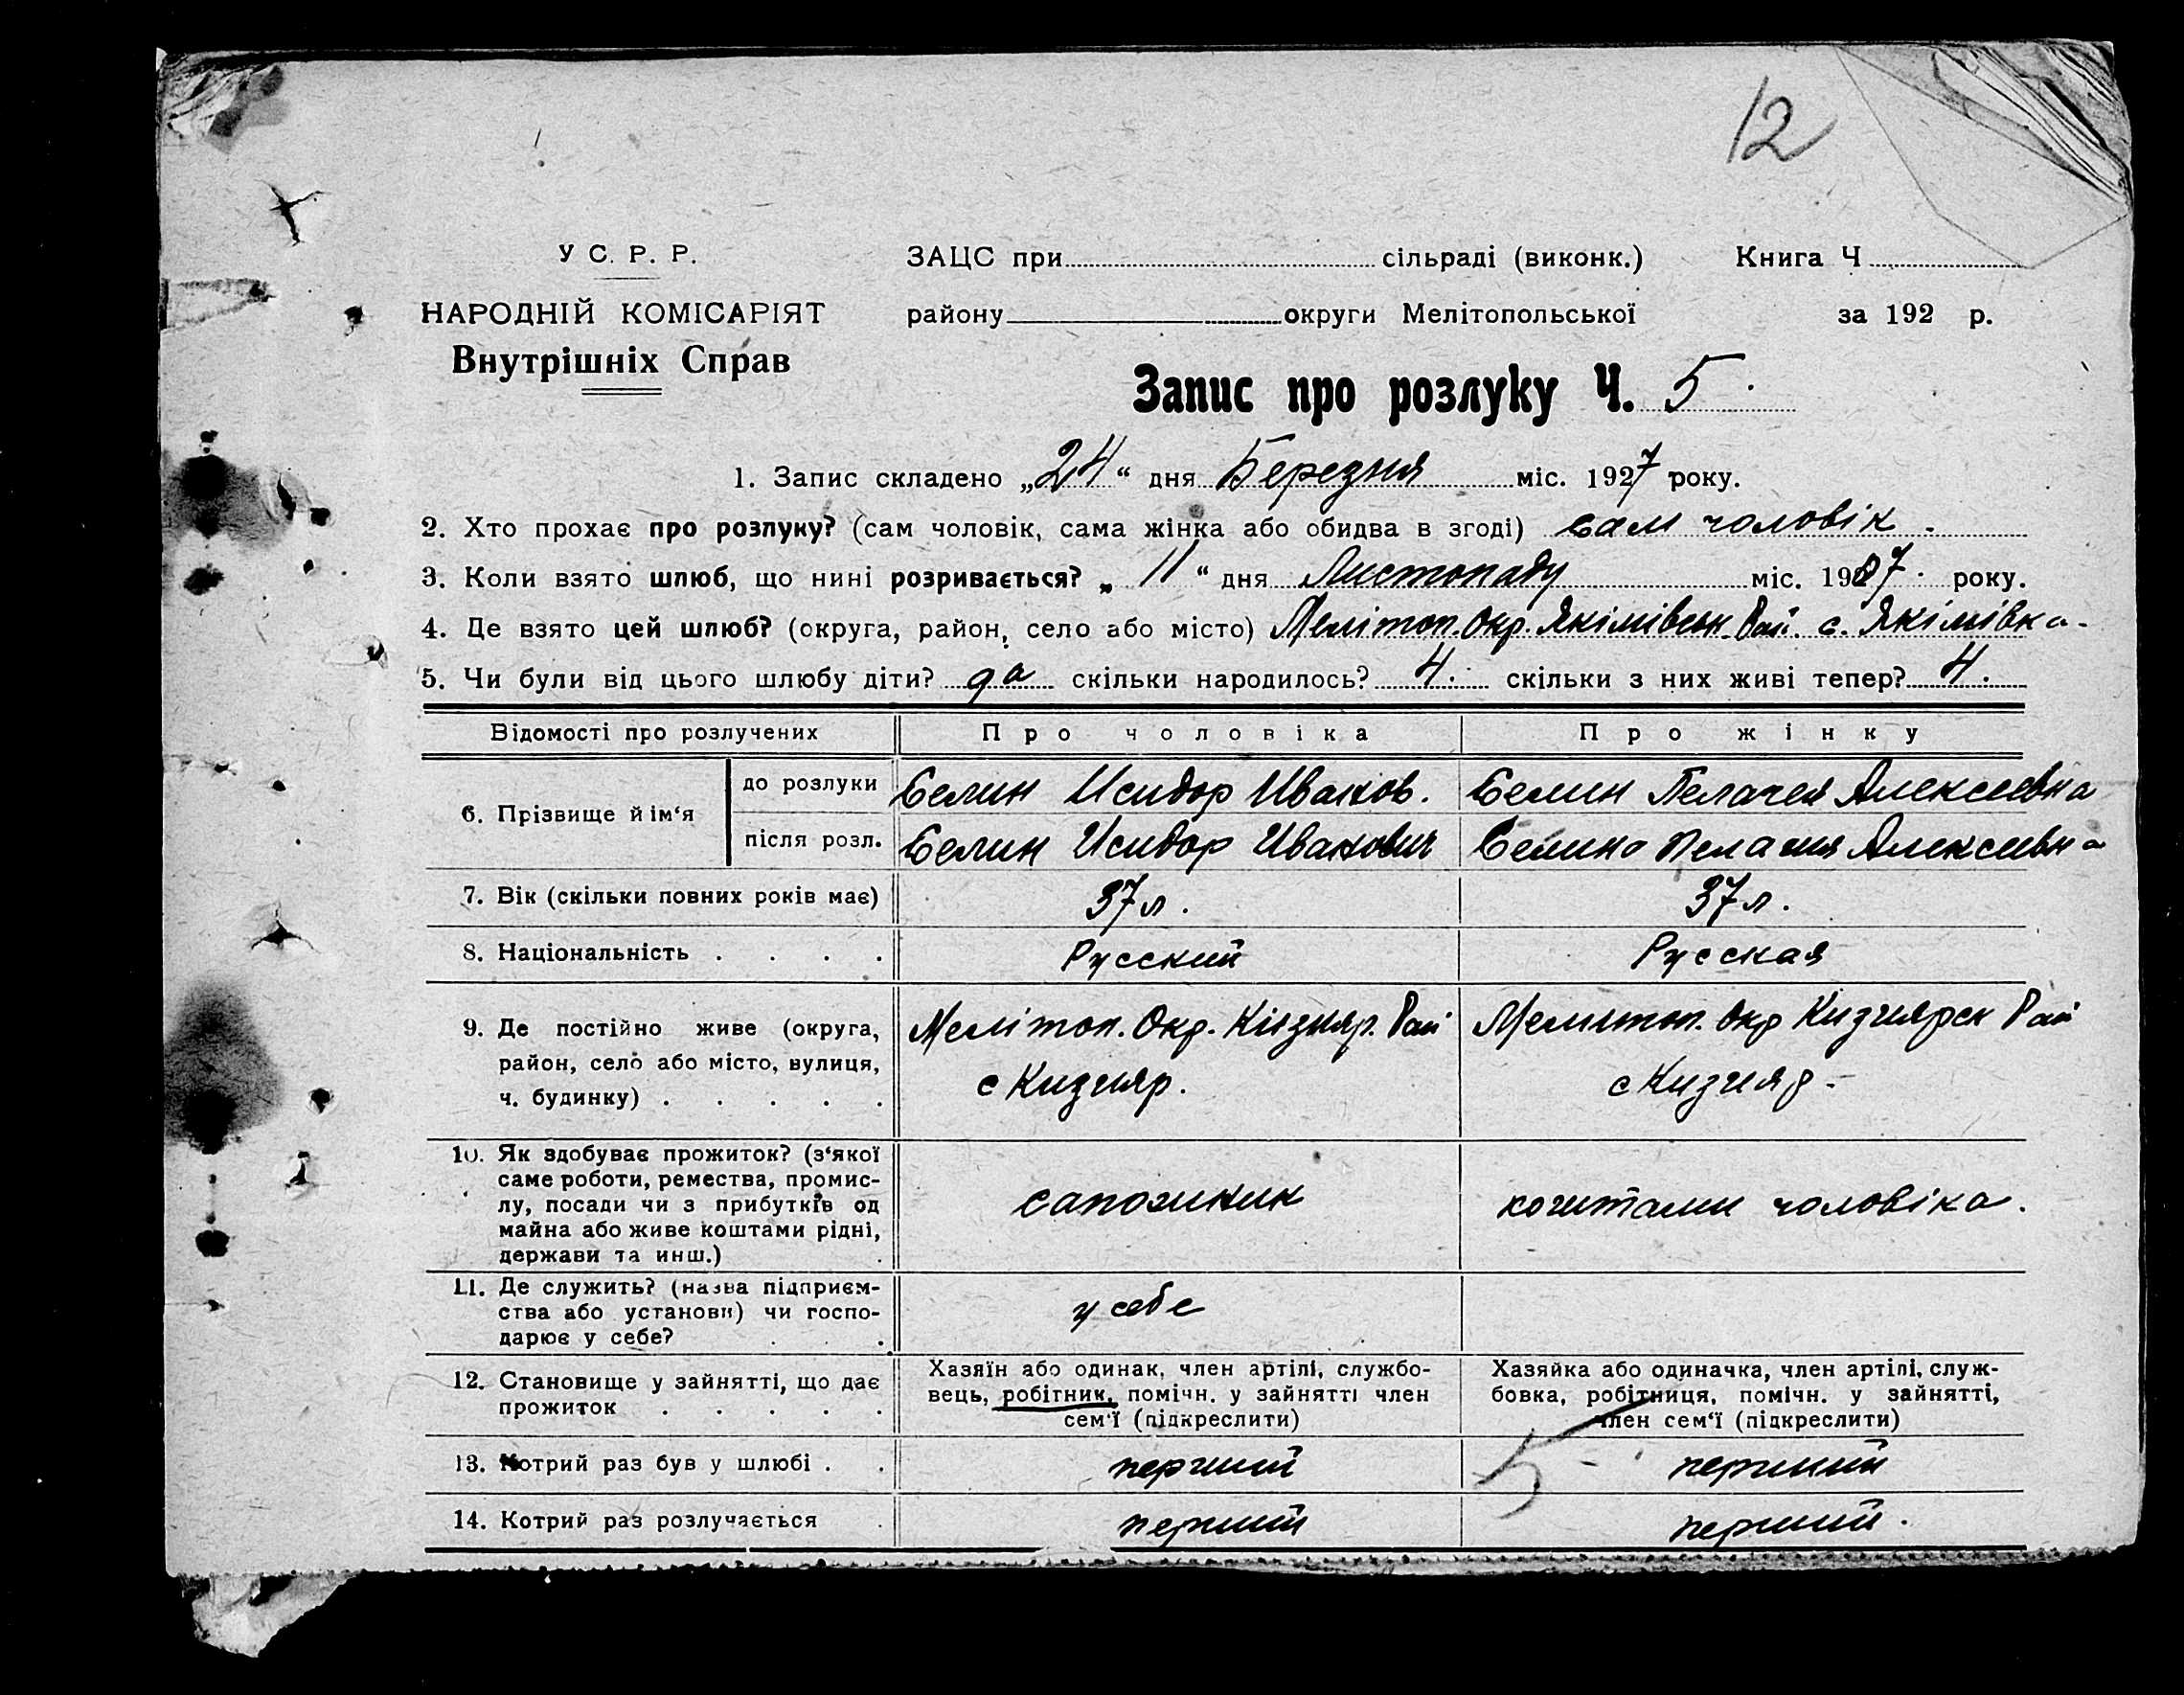 12
У С. Р. Р.
НАРОДНІЙ КОМІСАРІЯТ
Внутрішніх Справ
ЗАЦС при сільраді (виконк.) Книга Ч
району округи Мелітопольської за 192 р.
Запис про розлуку Ч. 5.
1. Запис складено „24“ дня Березня міс. 1927 року.
2. Хто прохає про розлуку? (сам чоловік, сама жінка або обидва в згоді) Сам чоловік.
3. Коли взято шлюб, що нині розривається? „11“ дня Листопаду міс. 1907. року.
4. Де взято цей шлюб? (округа, район, село або місто) Мелітоп. Окр. Якімівськ. Рай. с. Якімівка.
5. Чи були від цього шлюбу діти? да скільки народилось? 4. скільки з них живі тепер? 4.
Відомості про розлучених Про чоловіка Про жінку
6. Прізвище й ім‘я
до розлуки Селин Исидор Иванов. Селин Пелагея Алексеевна
після розл. Селин Исидор Иванович Селина Пелагия Алексеевна
7. Вік (скільки повних років має) 37 л. 37 л.
8. Національність . . . . Русский Русская
9. Де постійно живе (округа,
район, село або місто, вулиця,
ч. будинку) . . . . .
Мелітоп. Окр. Кізіяр. Рай
с Кизияр.
Мелитоп. Окр Кизиярск Рай
с Кизияр.
10. Як здобуває прожиток? (з‘якої
саме роботи, ремества, промис-
лу, посади чи з прибутків од
майна або живе коштами рідні,
держави та инш.)
сапожник
коштами чоловіка.
11. Де служить? (назва підприєм-
ства або установи) чи госпо-
дарює у себе?
у себе
12. Становище у зайнятті, що дає
прожиток . . . . .
Хазяїн або одинак, член артілі, службо-
вець, робітник, помічн. у зайнятті член
сем‘ї (підкреслити)
Хазяйка або одиначка, член артілі, служ-
бовка, робітниця, помічн. у зайнятті,
член сем‘ї (підкреслити)
13. Котрий раз був у шлюбі . . перший 5 - перший
14. Котрий раз розлучається . перший перший.